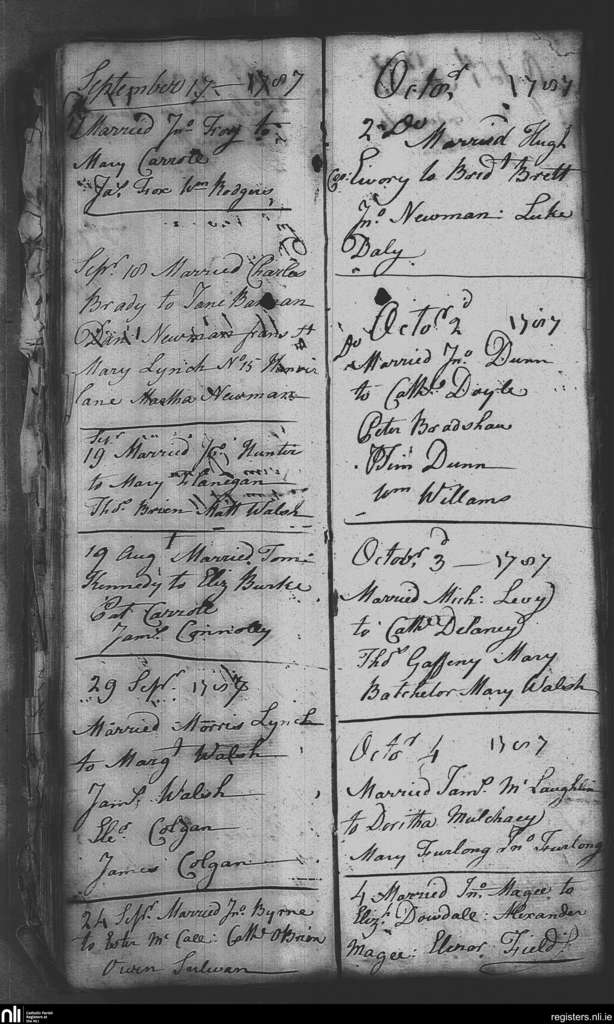 September 17 — 1787
Married Jno Troy to
Mary Carrole
Jas. Fox Wm Rodgers
Sepr. 18 Married Charles
Brady to Jane
Newman
Mary Lynch No 15
Lane Martha Newman
Sepr
19 Married Hunter
to Mary Flanegan
Thos. Brien Matt Walsh
19 Augt Married Tom:
Kennedy to Eliz Burke
Pat Carrole
Jams. Connolly
29 Sepr. 1787
Married Morris Lynch
to Margt Walsh
Jams. Walsh
Eler. Colgan
James Colgan
24 Sepr. Married Jno. Byrne
to Ester Mc Cale: Cathe. OBrion
Owen Sulivan
Octor. 1787
2d Do Married Hugh
Ewory to Bridt Brett
Jno. Newman: Luke
Daly
Octor. 2d 1787
Do
Married Jno. Dunn
to Cathe. Doyle
Peter Bradshaw
Tim Dunn
Wm Willams
Octobr. 3d — 1787
Married Mich: Levy
to Cathe Delaney
Thos. Gaffeny Mary
Batchelor Mary Walsh
Octor. 4 1787
Married Jams. Mc Laughlin
to Doritha Mulchaey
Mary Furlong Jno. Furlong
4 Married Jno. Magee to
Elizh. Dowdale: Alexander
Magee: Elenor Field
nli
Catholic Parish
Registers at
the NLI
registers.nli.ie